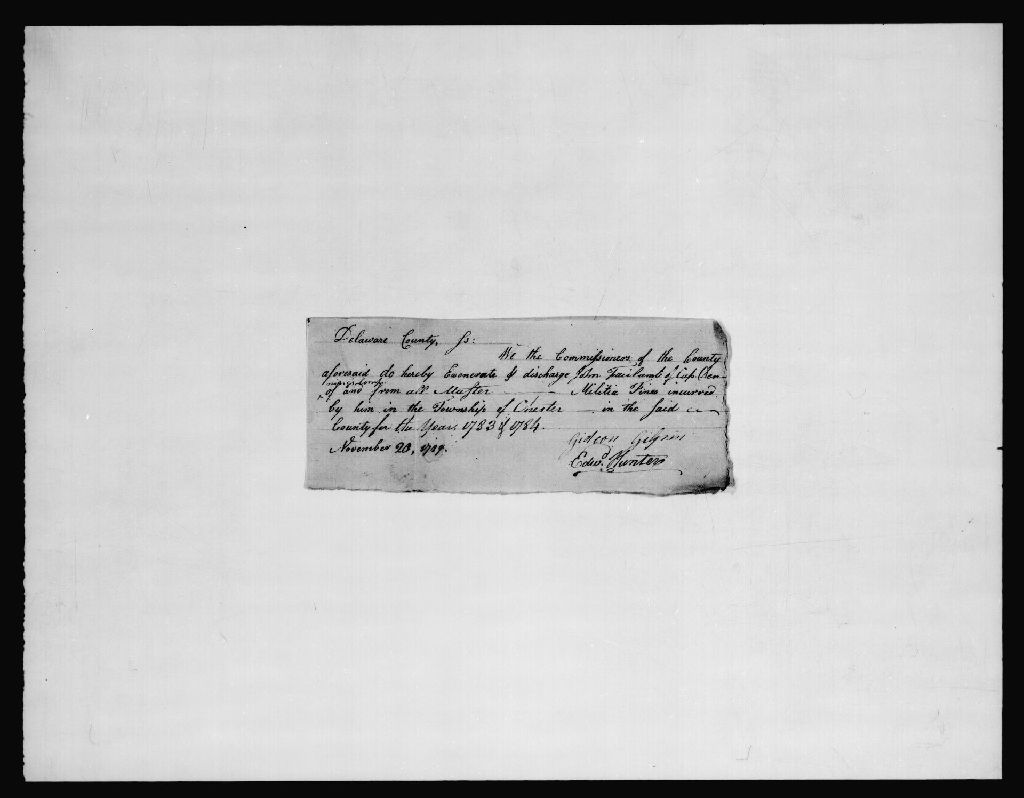 Delaware County, ss:
We the Commissioners of the County
aforesaid do hereby Exonerate & discharge John Fairlamb of Cap.
of and from all Muster — Militia Fines incurred
by him in the Township of Chester — in the said
County for the Years 1783 & 1784.
November 20, 1789.
Gideon Gilpin
Edwd. Hunter